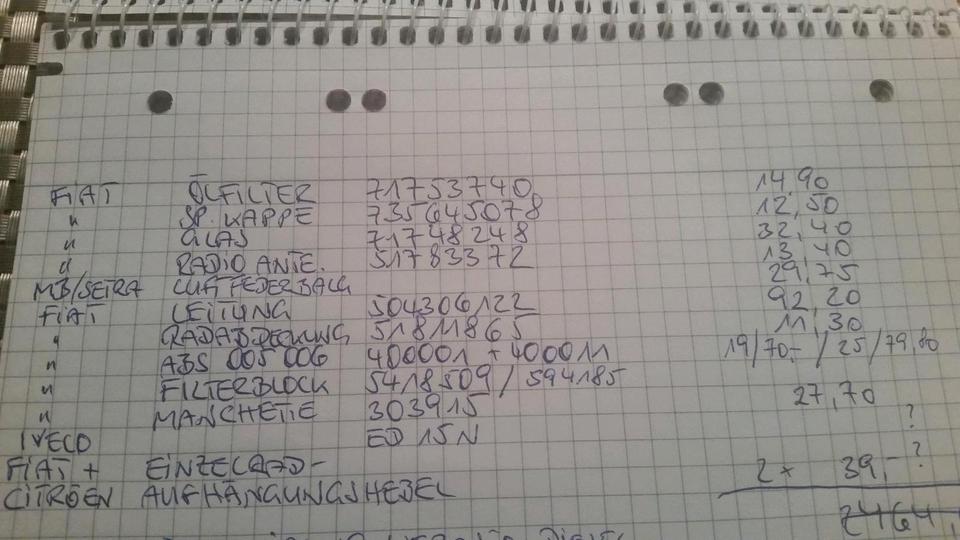 FIAT ÖLFILTER 71753740 14,90
" SP. KAPPE 735645078 12,50
" GLAS 71748248 32,40
" RADIO ANTE. 51783372 13,40
MB/SETRA LUFTFEDERBALG 29,75
FIAT LEITUNG 504306122 92,20
" RADABDECKUNG 51811865 11,30
" ABS 005 006 400001 + 400011 19/70,- / 25/79,80
" FILTERBLOCK 5418509 / 594185
" MANCHETTE 303915 27,70
IVECO ED 15N ?
FIAT + EINZELRAD- ?
CITRÖEN AUFHÄNGUNGSHEBEL 2 x 39,-
2464,